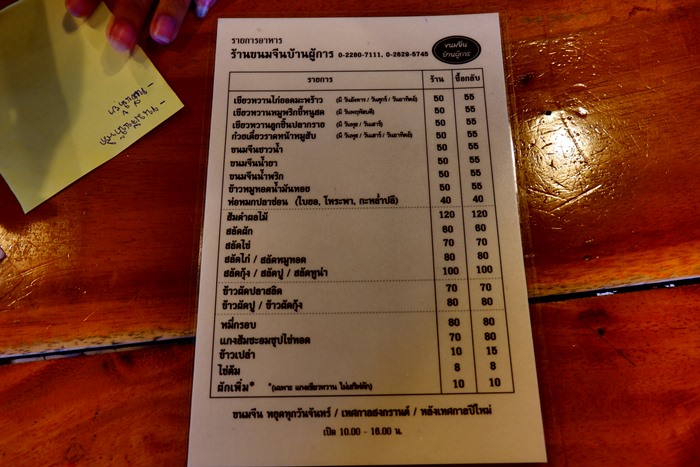 รายการอาหาร
ร้านขนมจีนบ้านผู้การ 0-2280-7111, 0-2629-5745
ขนมจีน
บ้านผู้การ
รายการ ร้าน ซื้อกลับ
เขียวหวานไก่ยอดมะพร้าว (มี วันอังคาร / วันศุกร์ / วันอาทิตย์) 50 55
เขียวหวานหมูพริกขี้หนูสด (มี วันพฤหัสบดี) 50 55
เขียวหวานลูกชิ้นปลากราย (มี วันพุธ / วันเสาร์) 50 55
ก๋วยเตี๋ยวราดหน้าหมูสับ (มี วันพุธ / วันเสาร์ / วันอาทิตย์) 50 55
ขนมจีนซาวน้ำ 50 55
ขนมจีนน้ำยา 50 55
ขนมจีนน้ำพริก 50 55
ข้าวหมูทอดน้ำมันหอย 50 55
ห่อหมกปลาช่อน (ใบยอ, โหระพา, กะหล่ำปลี) 40 40
ส้มตำผลไม้ 120 120
สลัดผัก 60 60
สลัดไข่ 70 70
สลัดไก่ / สลัดหมูทอด 80 80
สลัดกุ้ง / สลัดปู / สลัดทูน่า 100 100
ข้าวผัดปลาสลิด 70 70
ข้าวผัดปู / ข้าวผัดกุ้ง 80 80
หมี่กรอบ 80 80
แกงส้มชะอมชุปไข่ทอด 70 80
ข้าวเปล่า 10 15
ไข่ต้ม 8 8
ผักเพิ่ม* *(เฉพาะ แกงเขียวหวาน ไม่เสริฟผัก) 10 10
ขนมจีน หยุดทุกวันจันทร์ / เทศกาลสงกรานต์ / หลังเทศกาลปีใหม่
เปิด 10.00 - 16.00 น.